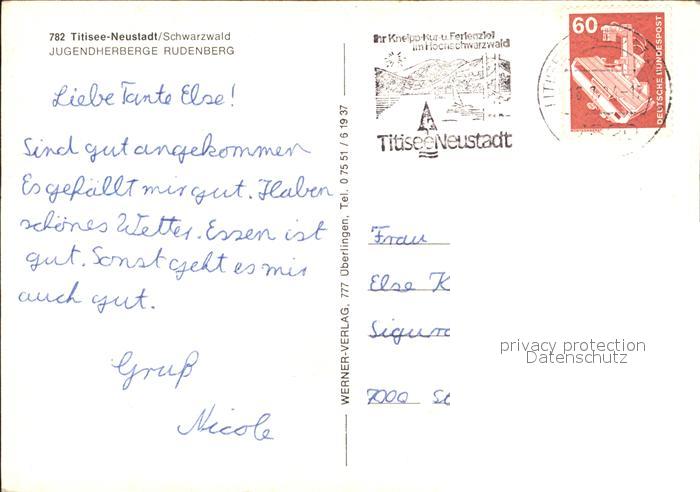 782 Titisee-Neustadt/Schwarzwald
JUGENDHERBERGE RUDENBERG
Liebe Tante Else!
Sind gut angekommen
Es gefällt mir gut. Haben
schönes Wetter. Essen ist
gut. Sonst geht es mir
auch gut.
Gruß
Nicole
WERNER-VERLAG, 777 Überlingen, Tel. 0 75 51 / 6 19 37
Ihr Kneipp-Kur-u. Ferienziel
im Hochschwarzwald
Titisee-Neustadt
60
DEUTSCHE BUNDESPOST
Frau
Else K
Sigur
7000 St
privacy protection
Datenschutz